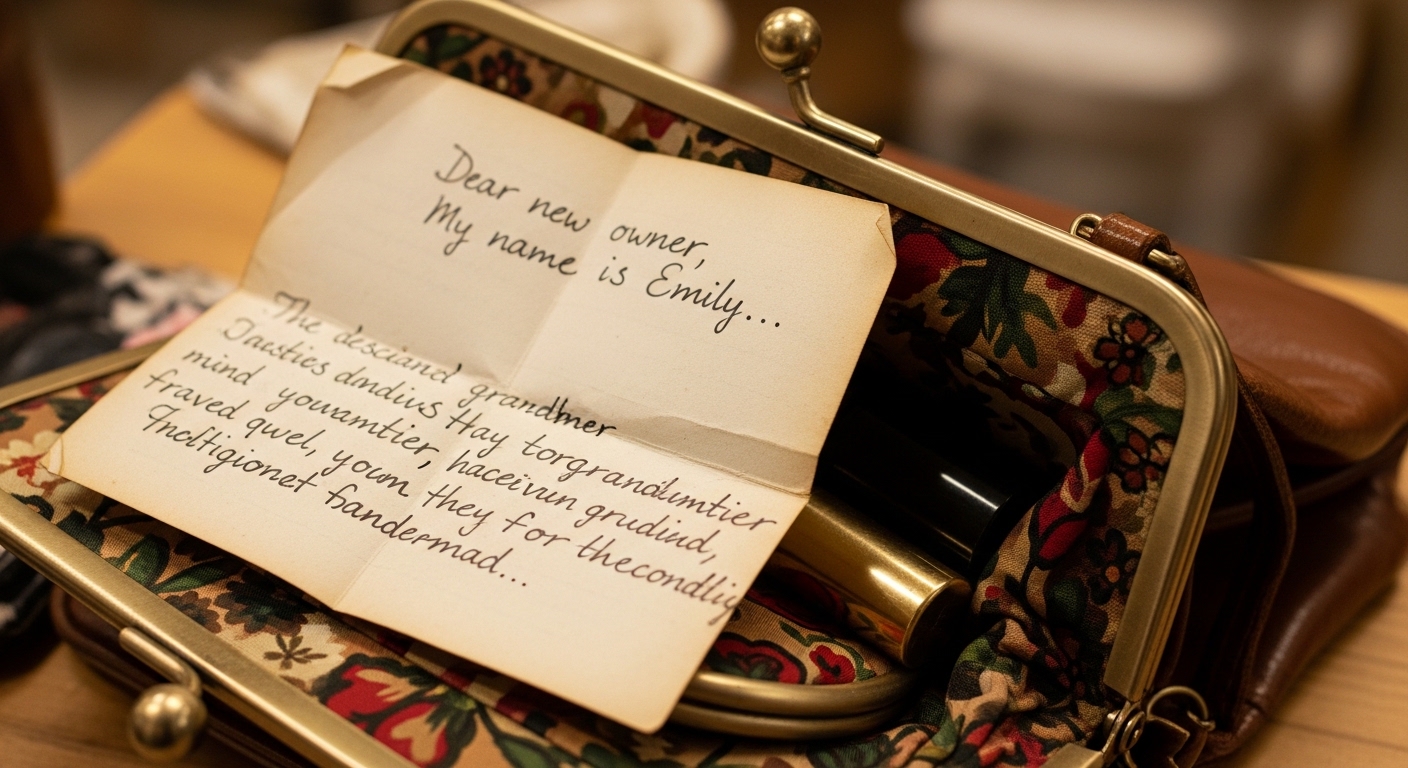 Dear new owner,
My name is Emily...
The desciand grandmer
Dausties dmdius Hay torgrandumtier
mind youuamtier, haceivun grudind,
fraved qwel, youm they for thecondliy
Incltigionet handermad...